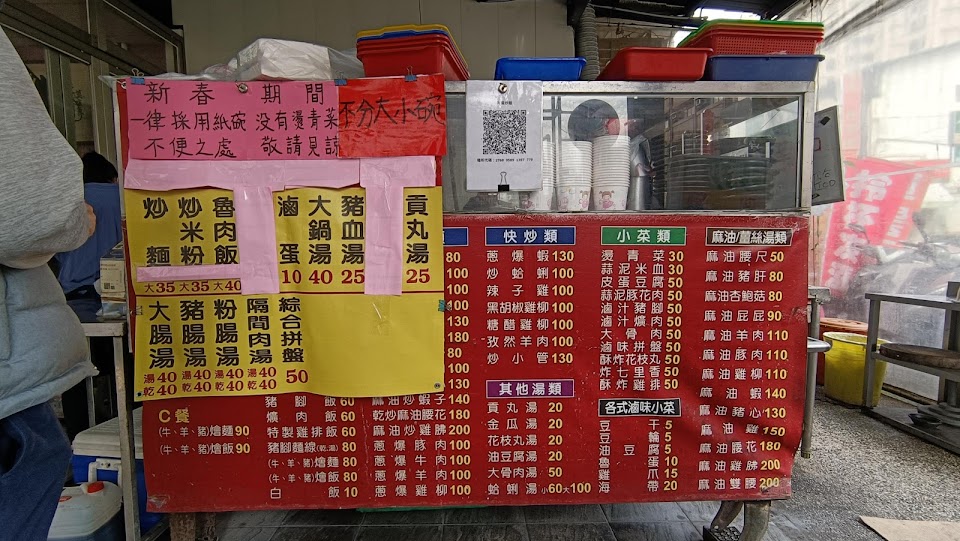 新春期間
一律採用紙碗 没有燙青菜
不便之處 敬請見諒
不分大小碗
炒麵 大35
炒米粉 大35
魯肉飯 大40
滷蛋 10
大鍋湯 40
豬血湯 25
貢丸湯 25
大腸湯 湯40 乾40
豬腸湯 湯40 乾40
粉腸湯 湯40 乾40
隔間肉湯 湯40 乾40
綜合拼盤 50
C餐
(牛、羊、豬)燴麵90
(牛、羊、豬)燴飯90
豬腳飯60
爌肉飯60
特製雞排飯60
豬腳麵線(乾.湯)80
(牛、羊、豬)燴麵80
(牛、羊、豬)燴飯80
白飯10
80
100
100
100
130
180
80
100
130
麻油炒蝦子140
乾炒麻油腰花180
麻油炒雞胇200
蔥爆豚肉100
蔥爆牛肉100
蔥爆羊肉100
蔥爆雞柳100
快炒類
蔥爆蝦130
炒蛤蜊100
辣子雞100
黑胡椒雞柳100
糖醋雞柳100
孜然羊肉100
炒小管130
其他湯類
貢丸湯20
金瓜湯20
花枝丸湯20
油豆腐湯20
大骨肉湯50
蛤蜊湯 小60大100
小菜類
燙青菜30
蒜泥米血30
皮蛋豆腐50
蒜泥豚花肉50
滷汁豬腳50
滷汁爌肉50
大骨肉50
滷味拼盤50
酥炸花枝丸50
炸七里香50
酥炸雞排50
各式滷味小菜
豆干5
豆輪5
油豆腐5
魯蛋10
雞爪15
海帶20
麻油/薑絲湯類
麻油腰尺50
麻油豬肝80
麻油杏鮑菇80
麻油屁屁90
麻油羊肉110
麻油豚肉110
麻油雞柳110
麻油蝦140
麻油豬心130
麻油雞150
麻油腰花180
麻油雞胇200
麻油雙腰200